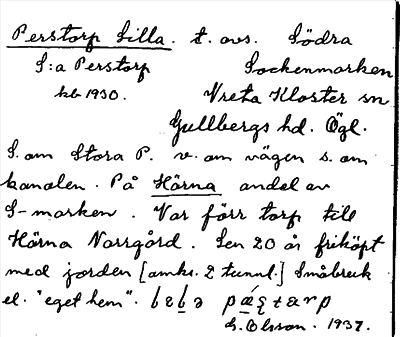 Perstorp Lilla. t. avs. Södra
S:a Perstorp Sockenmarken
kb 1930. Vreta Kloster sn
Gullbergs hd. Ögl.
S. om Stora P. v. om vägen s. om
kanalen. På Hörna andel av
S-marken. Var förr torp till
Hörna Norrgård. Sen 20 år friköpt
med jorden [omkr. 2 tunnl.] Småbruk
el. "eget hem".
G. Olsson. 1937.